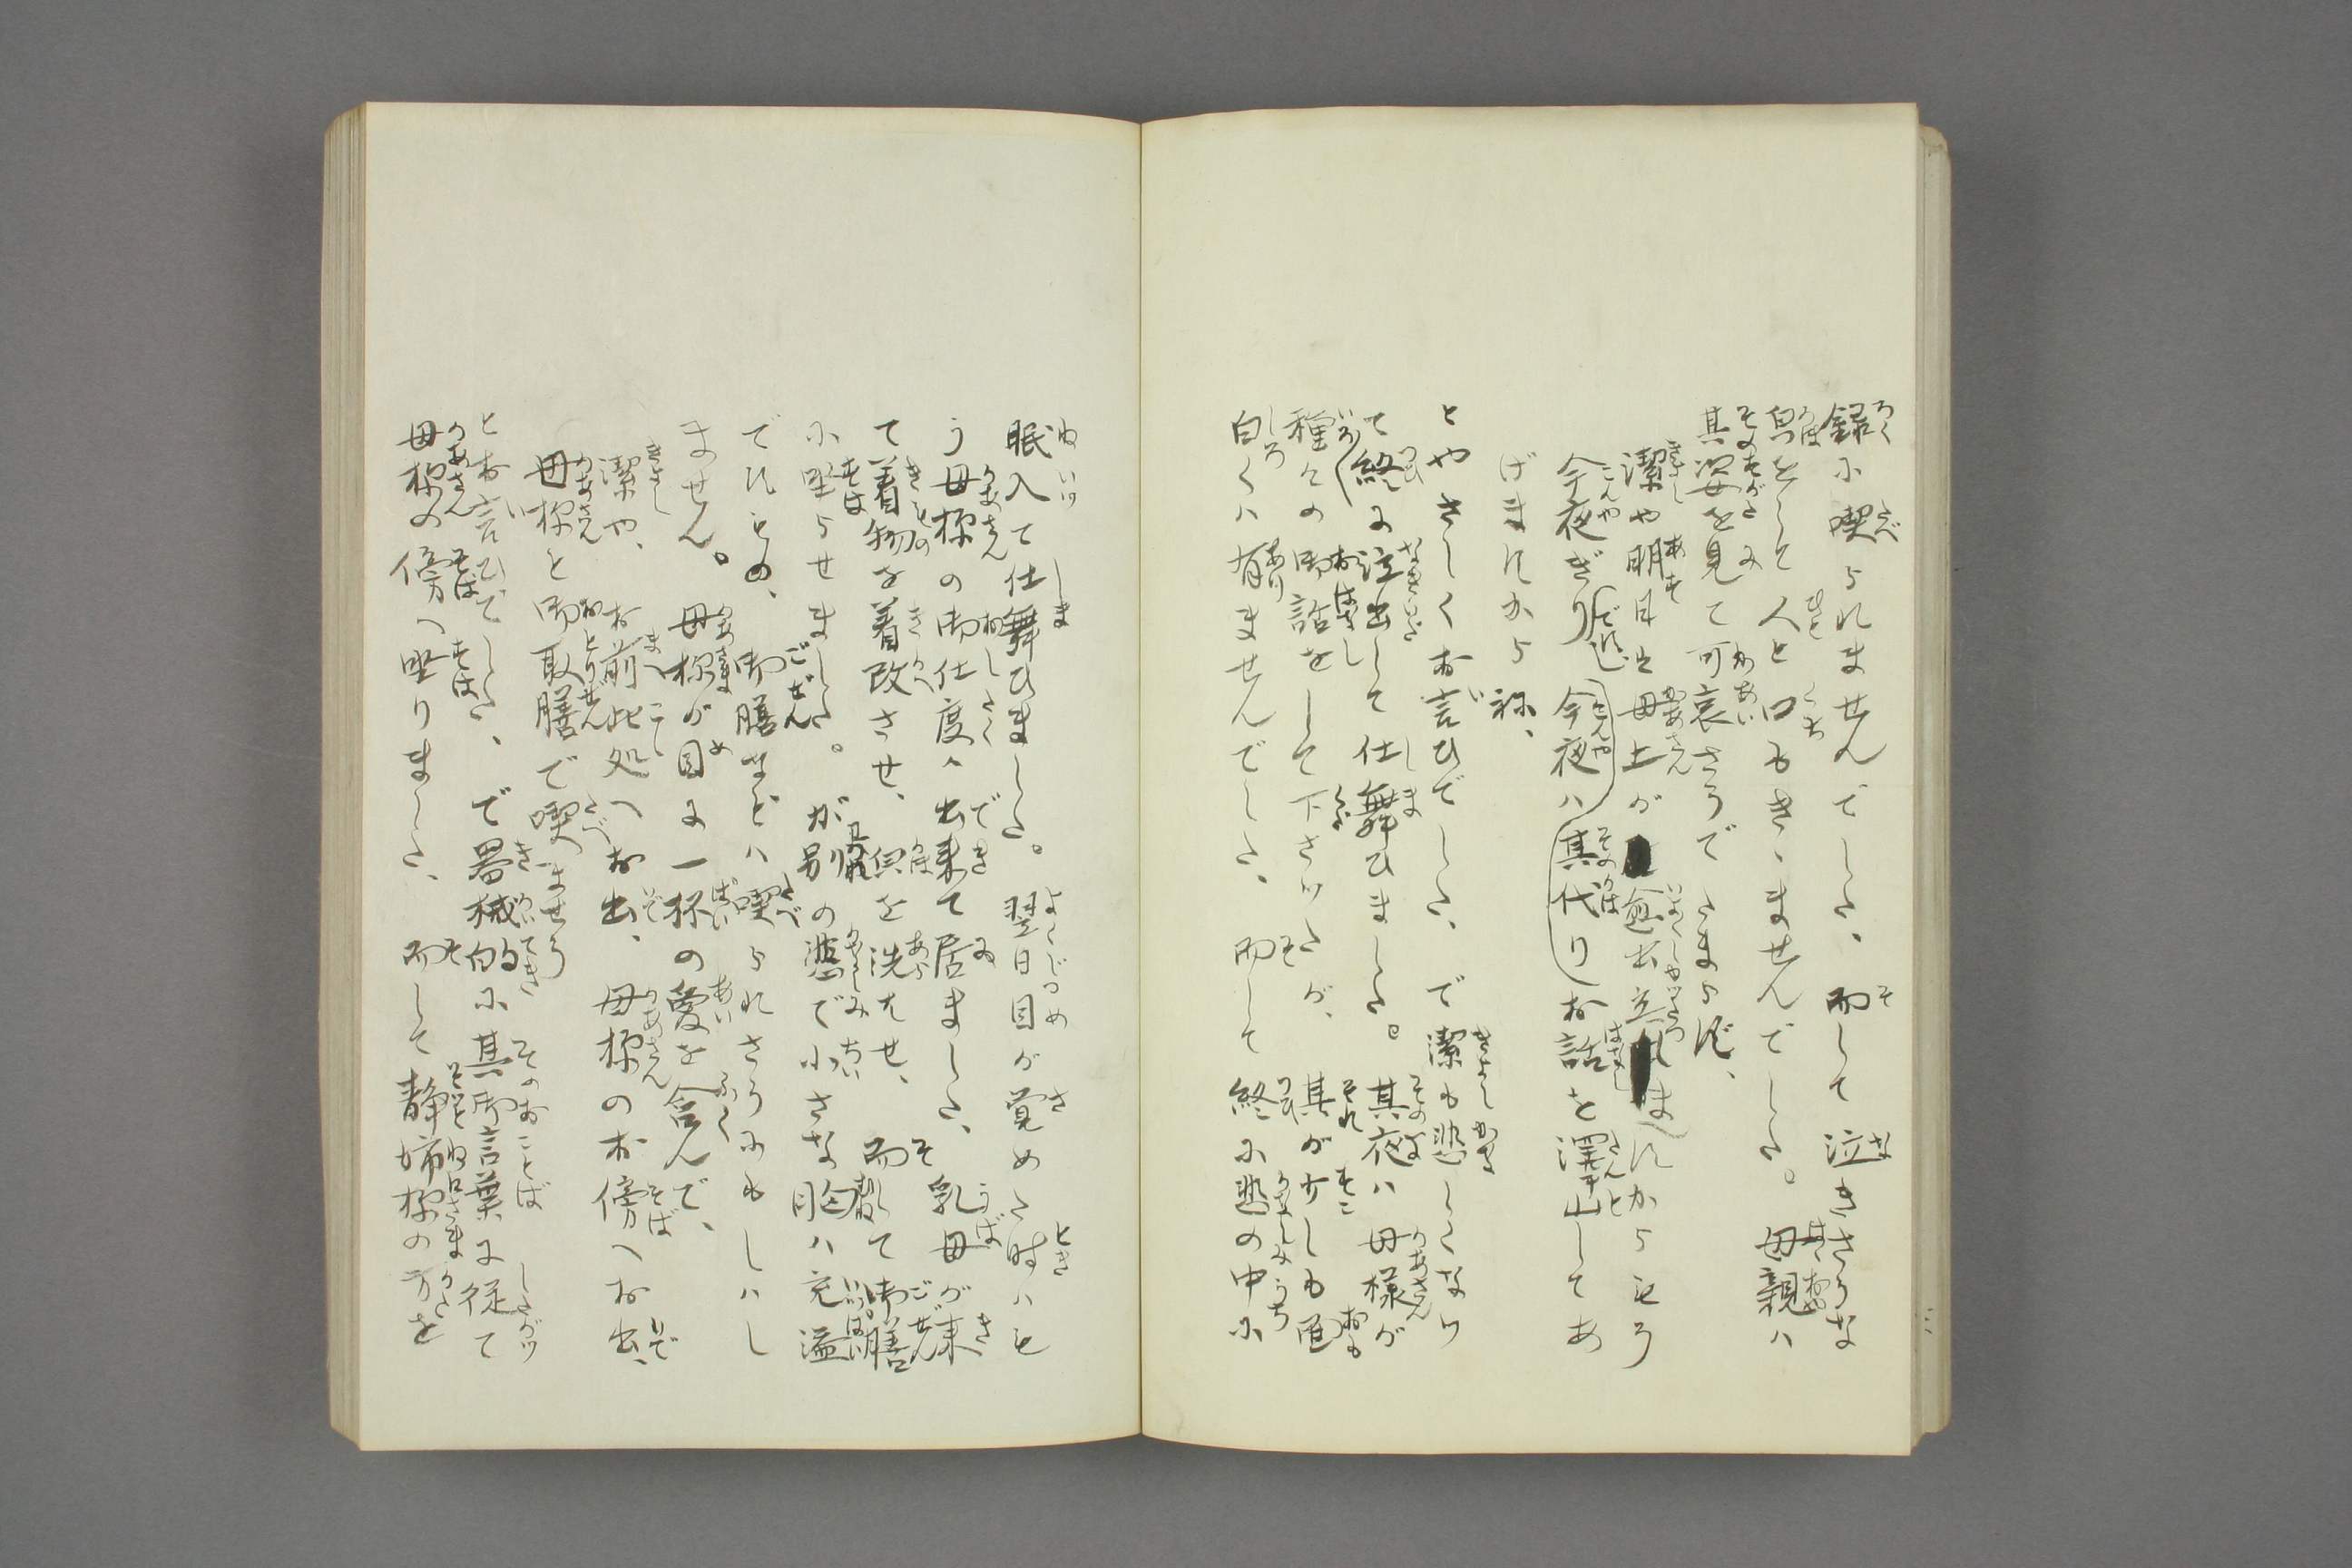 録に喫られませんでした、而して泣きさうな
皃をして人と口もきゝませんでした。母親ハ
其姿を見て可哀さうでたまらず、
潔や明日ハ母上が愈出立しますからもう
今夜ぎりでれし今夜ハ其代りお話を澤山してあ
げますから祢、
とやさしくお言ひでした、で潔も悲しくなツ
て終に泣出して仕舞ひました。其夜ハ母様が
種々の御話をして下さツたが、其が少しも面
白くハ有ませんでした、而して終に悲の中に
眠入て仕舞ひました。翌日目が覚めた時ハも
う母様の御仕度ハ出来て居ました、乳母が来
て着物を着改させ、皃を洗はせ、而して御膳
に坐らせました。が別の悲で小さな胸ハ充溢
ですもの、御膳などハ喫られさうにもしハし
ません。母様が目に一杯の愛を含んで、
潔や、お前此処へお出、母様のお傍へお出、
母様と御取膳で喫ませう
とお言ひでした、で器械的に其御言葉に従て
母様の傍へ坐りました、而して静姉様の方を